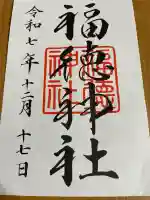 福徳神社
令和七年 十二月 十七日